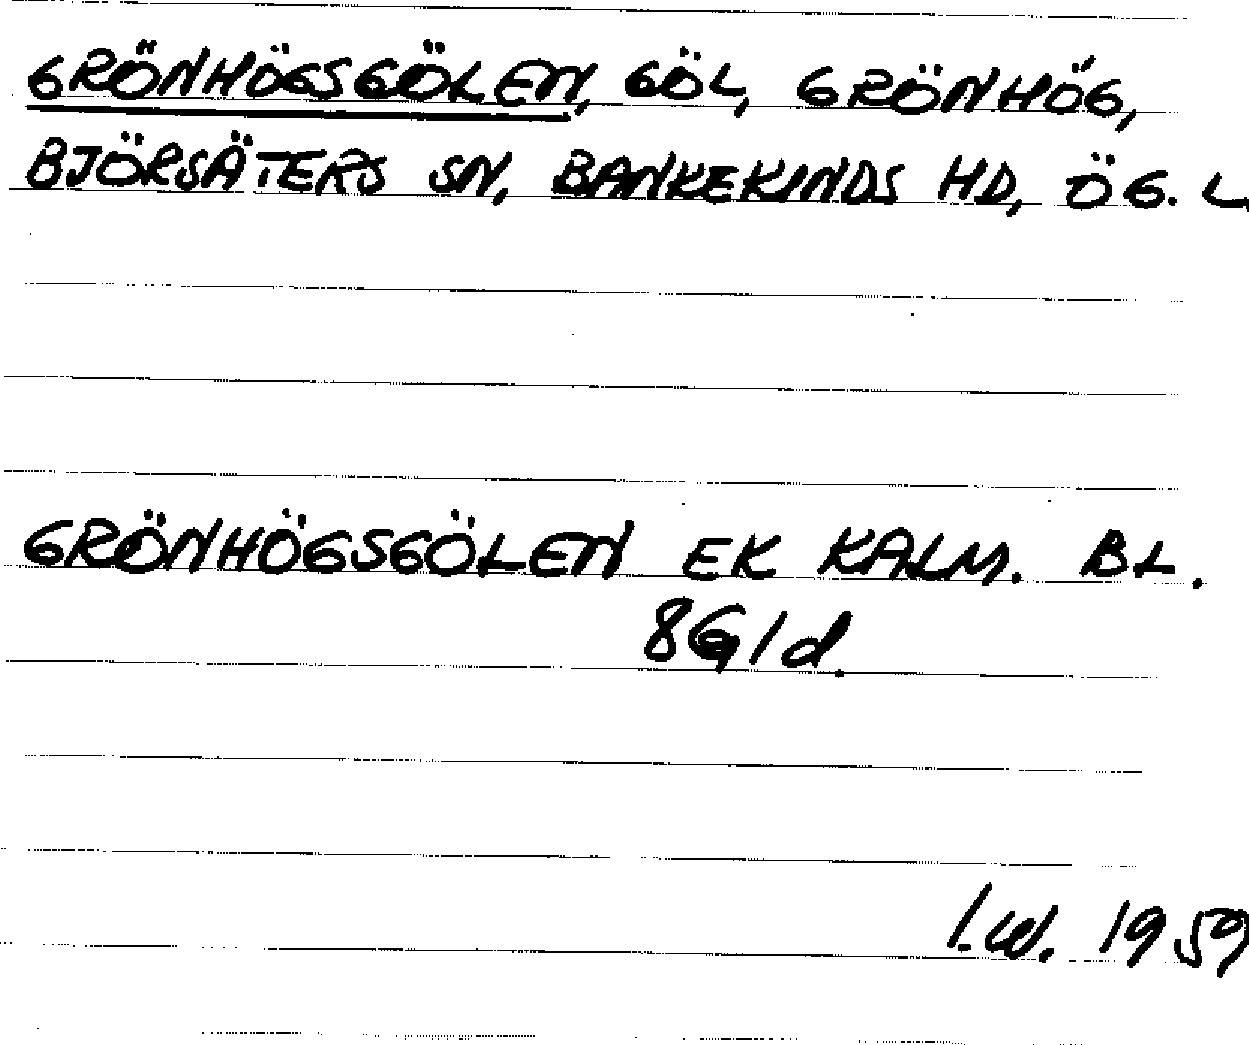 GRÖNHÖGSGÖLEN, GÖL, GRÖNHÖG,
BJÖRSÄTERS SN, BANKEKINDS HD, ÖG. L.
GRÖNHÖGSGÖLEN EK KALM. BL.
8G/d.
I.W. 1959